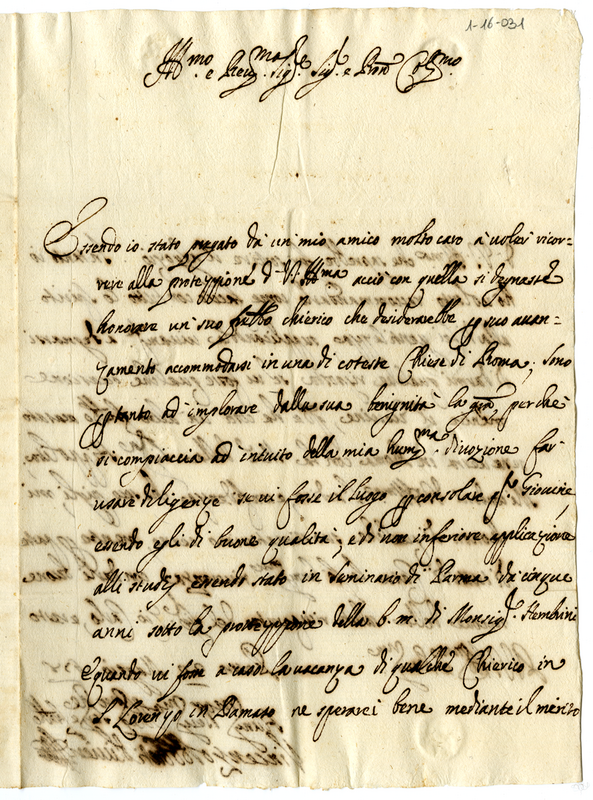 1-16-031
Ill.mo e Rev.mo Sig.r Sig.r e Pron Col.mo
Essendo io stato pregato da un mio amico molto caro à voler ricor=
rere alla protezzione di V.S. Ill.ma acciò con quella si degnasse
honorare un suo frãtello chierico che desiderarebbe p suo auan=
zamento accommodarsi in una di coteste Chiese di Roma, sono
p tanto ad implorare dalla sua benignità la gra, perche
si compiaccia ad intuito della mia hum.ma diuozione far
usare diligenze se ui fosse il luogo p consolare q.sto Giouine,
essendo egli di buone qualità, e di non inferiore applicazione
alli studij essendo stato in seminario di Parma da cinque
anni sotto la protezzione della b. m. di Monsig.r
e quando ui fosse a caso la uacanza di qualche Chierico in
S. Lorenzo in Damaso ne sperarei bene mediante il merito